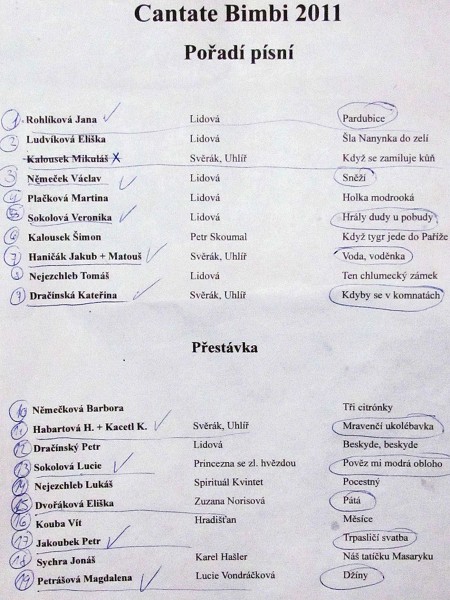 Cantate Bimbi 2011
Pořadí písní
1 Rohlíková Jana Lidová Pardubice
2 Ludvíková Eliška Lidová Šla Nanynka do zelí
Kalousek Mikuláš x Svěrák, Uhlíř Když se zamiluje kůň
3 Němeček Václav Lidová Sněží
4 Plačková Martina Lidová Holka modrooká
5 Sokolová Veronika Lidová Hrály dudy u pobudy
6 Kalousek Šimon Petr Skoumal Když tygr jede do Paříže
7 Haničák Jakub + Matouš Svěrák, Uhlíř Voda, voděnka
8 Nejezchleb Tomáš Lidová Ten chlumecký zámek
9 Dračínská Kateřina Svěrák, Uhlíř Kdyby se v komnatách
Přestávka
10 Němečková Barbora Tři citrónky
11 Habartová H. + Kacetl K. Svěrák, Uhlíř Mravenčí ukolébavka
12 Dračínský Petr Lidová Beskyde, beskyde
13 Sokolová Lucie Princezna se zl. hvězdou Pověz mi modrá obloho
14 Nejezchleb Lukáš Spirituál Kvintet Pocestný
15 Dvořáková Eliška Zuzana Norisová Pátá
16 Kouba Vít Hradišťan Měsíce
17 Jakoubek Petr Trpasličí svatba
18 Sychra Jonáš Karel Hašler Náš tatíčku Masaryku
19 Petrášová Magdalena Lucie Vondráčková Džíny